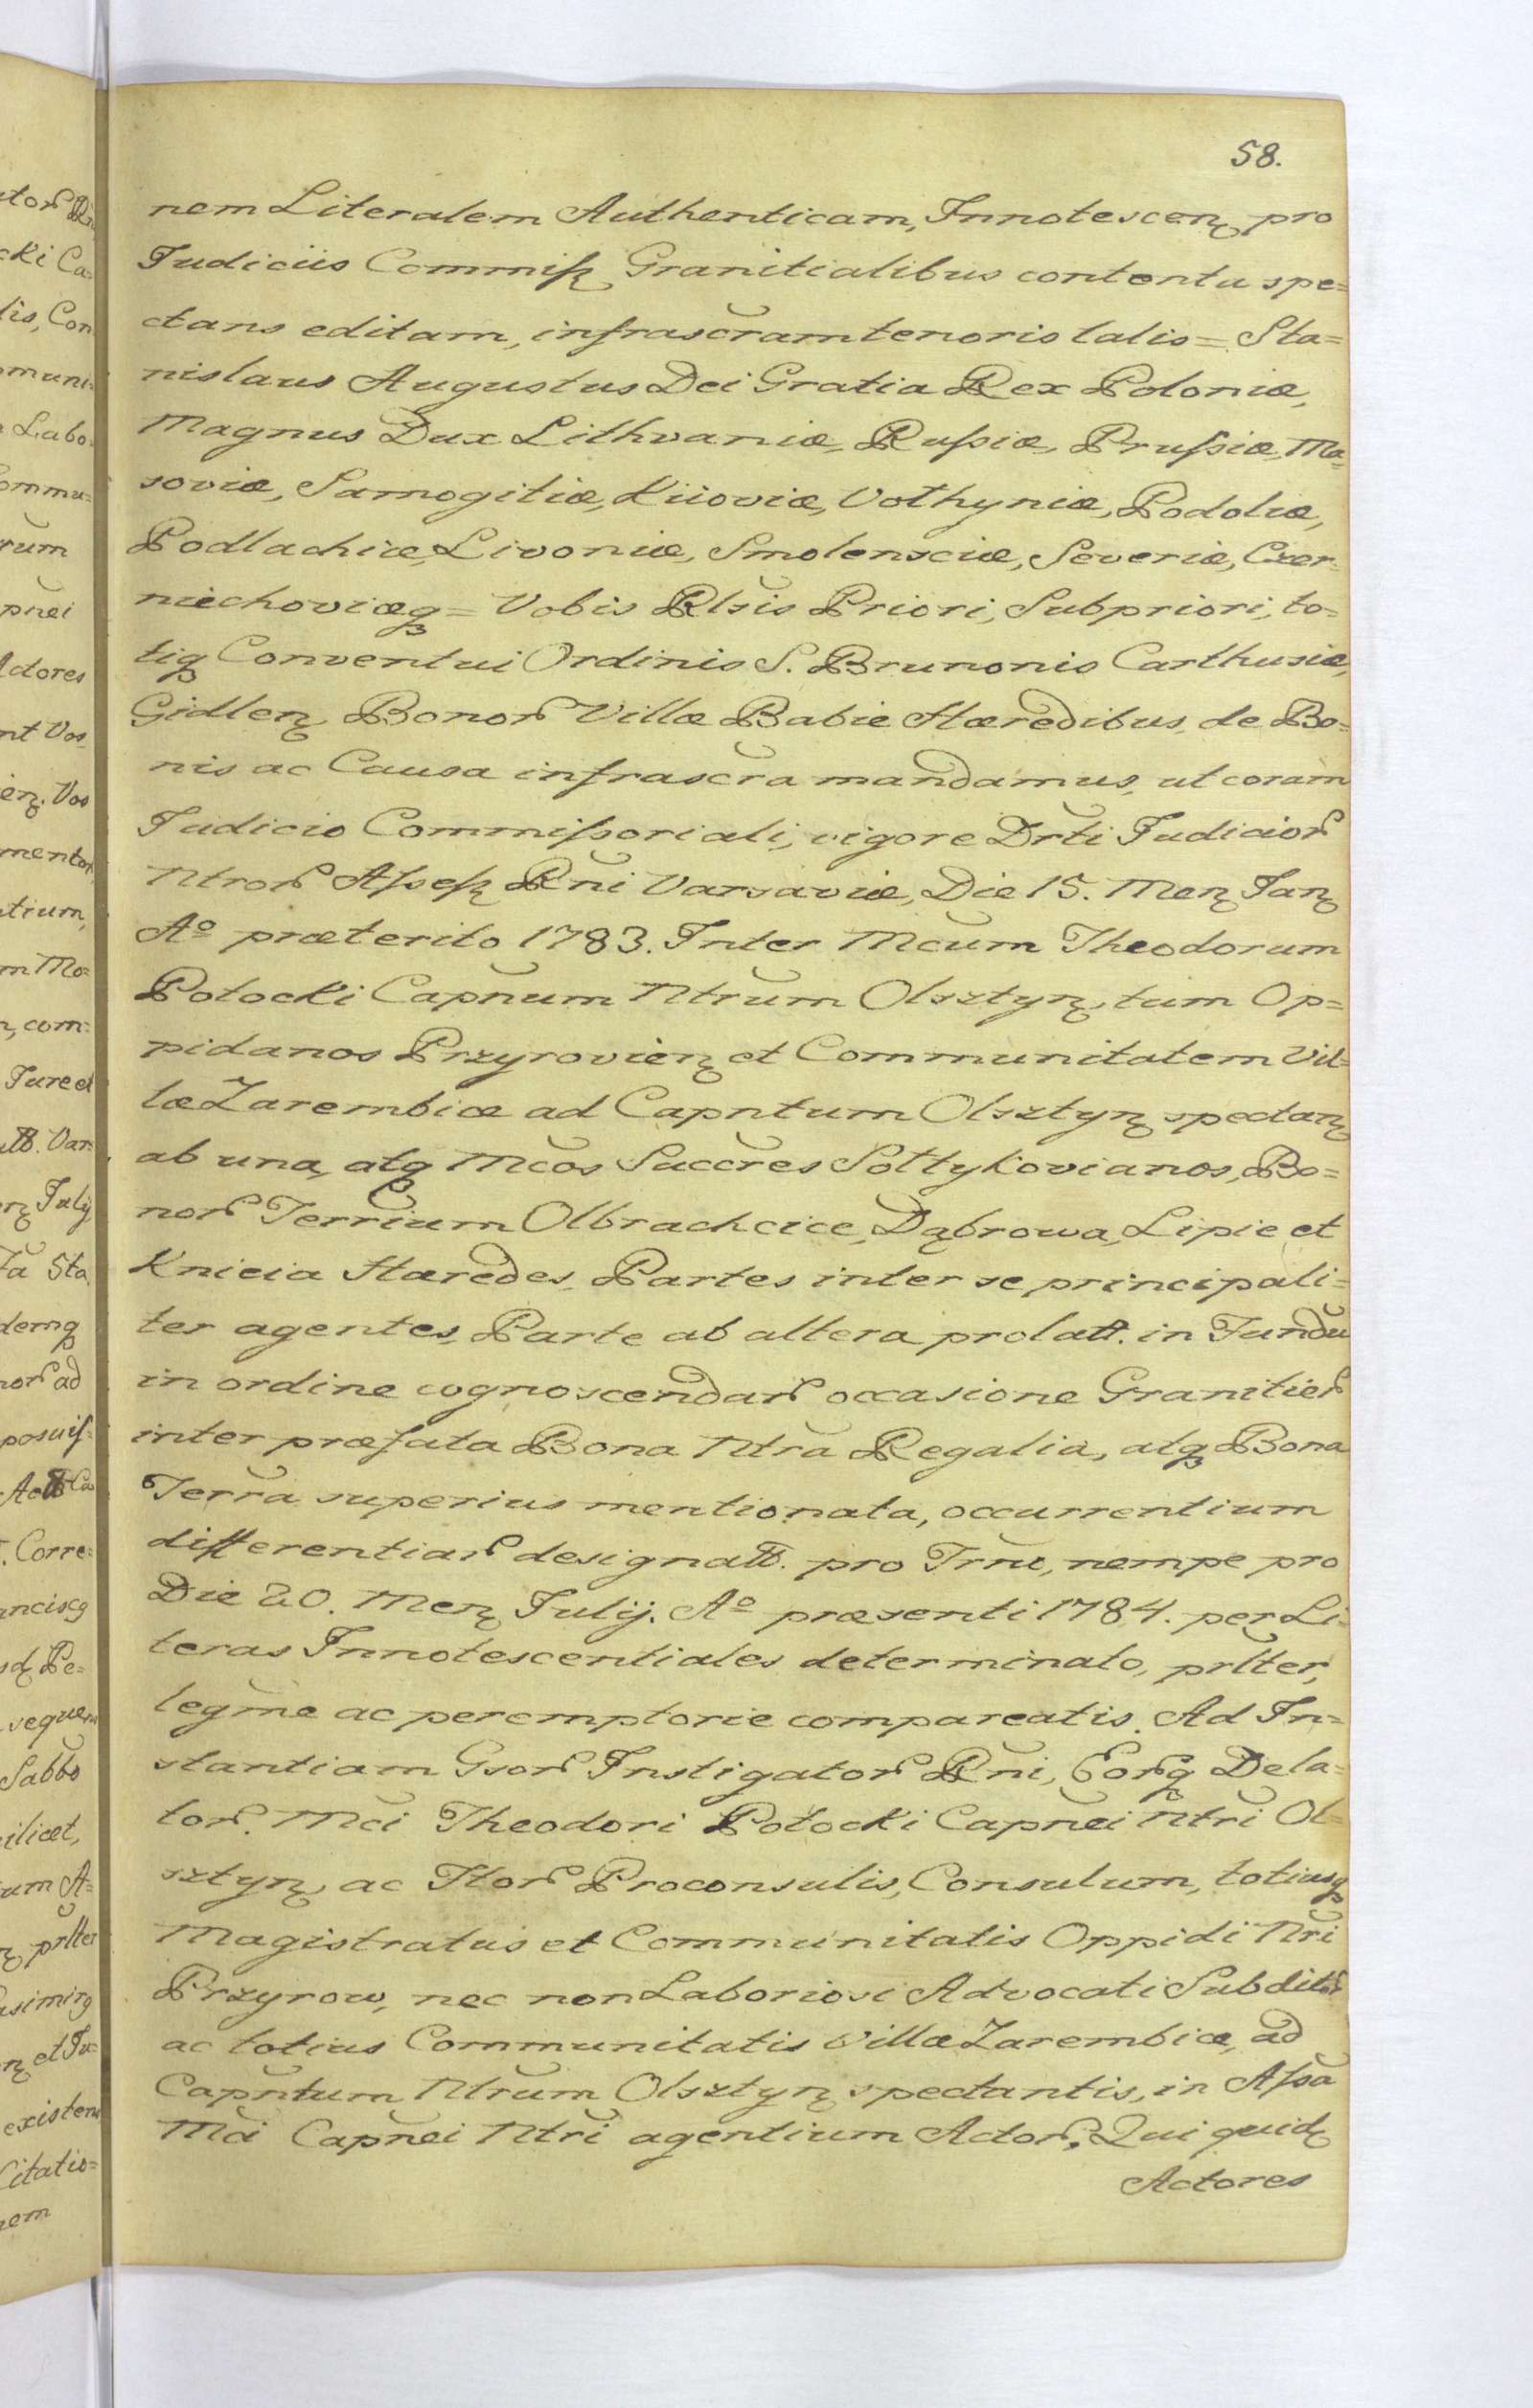 58.
nem Literalem Authenticam, Innotescen. pro
Judiciis Commiss. Granitialibus contentu spe=
ctans editam, infrascram tenoris talis = Sta=
nislaus Augustus Dei Gratia Rex Poloniæ,
Magnus Dux Lithvaniæ, Russiæ, Prussiæ, Ma=
soviæ, Samogitiæ, Kiioviæ, Volhyniæ, Podoliæ,
Podlachiæ, Livoniæ, Smolensciæ, Severiæ, Czer=
niechoviæq = Vobis Rlsis Priori, Subpriori, to=
tiq Conventui Ordinis S. Brunonis Carthusiæ,
Gidlen. Bonor Villæ Babie Hæredibus, de Bo=
nis ac Causa infrascra mandamus, ut coram
Judicio Commissoriali, vigore Drti Judicior
Ntror Assess. Rni Varsaviæ, Die 15. Men. Jan.
Aº præterito 1783. Inter Mcum Theodorum
Potocki Capnum Ntrum Olsztyn. tum Op=
pidanos Przyrovien. et Communitatem Vil=
læ Zarembice ad Capntum Olsztyn. spectan.
ab una, atq Mcos Succres Sołtykovianos, Bo=
nor Terrium Olbrachcice, Dąbrowa, Lipie et
Knieia Hæredes, Partes inter se principali=
ter agentes, Parte ab altera prolatt. in Fundu
in ordine cognoscendar occasione Granitier
inter præfata Bona Ntra Regalia, atq Bona
Terra superius mentionata, occurrentium
differentiar designatt. pro Trno, nempe pro
Die 20. Men. Julij. Aº præsenti 1784. per Li=
teras Innotescentiales determinato, prlter,
legme ac peremptorie compareatis. Ad In=
stantiam Gsor Instigator Rni, Eorq Dela=
tor. Mci Theodori Potocki Capnei Ntri Ol=
sztyn. ac Hor Proconsulis, Consulum, totiusq
Magistratus et Communitatis Oppidi Nri
Przyrow, nec non Laboriosi Advocati Subditor
ac totius Communitatis Villæ Zarembice, ad
Capntum Ntrum Olsztyn. spectantis, in Assa
Mci Capnei Ntri agentium Actor. Qui quid.
Actores